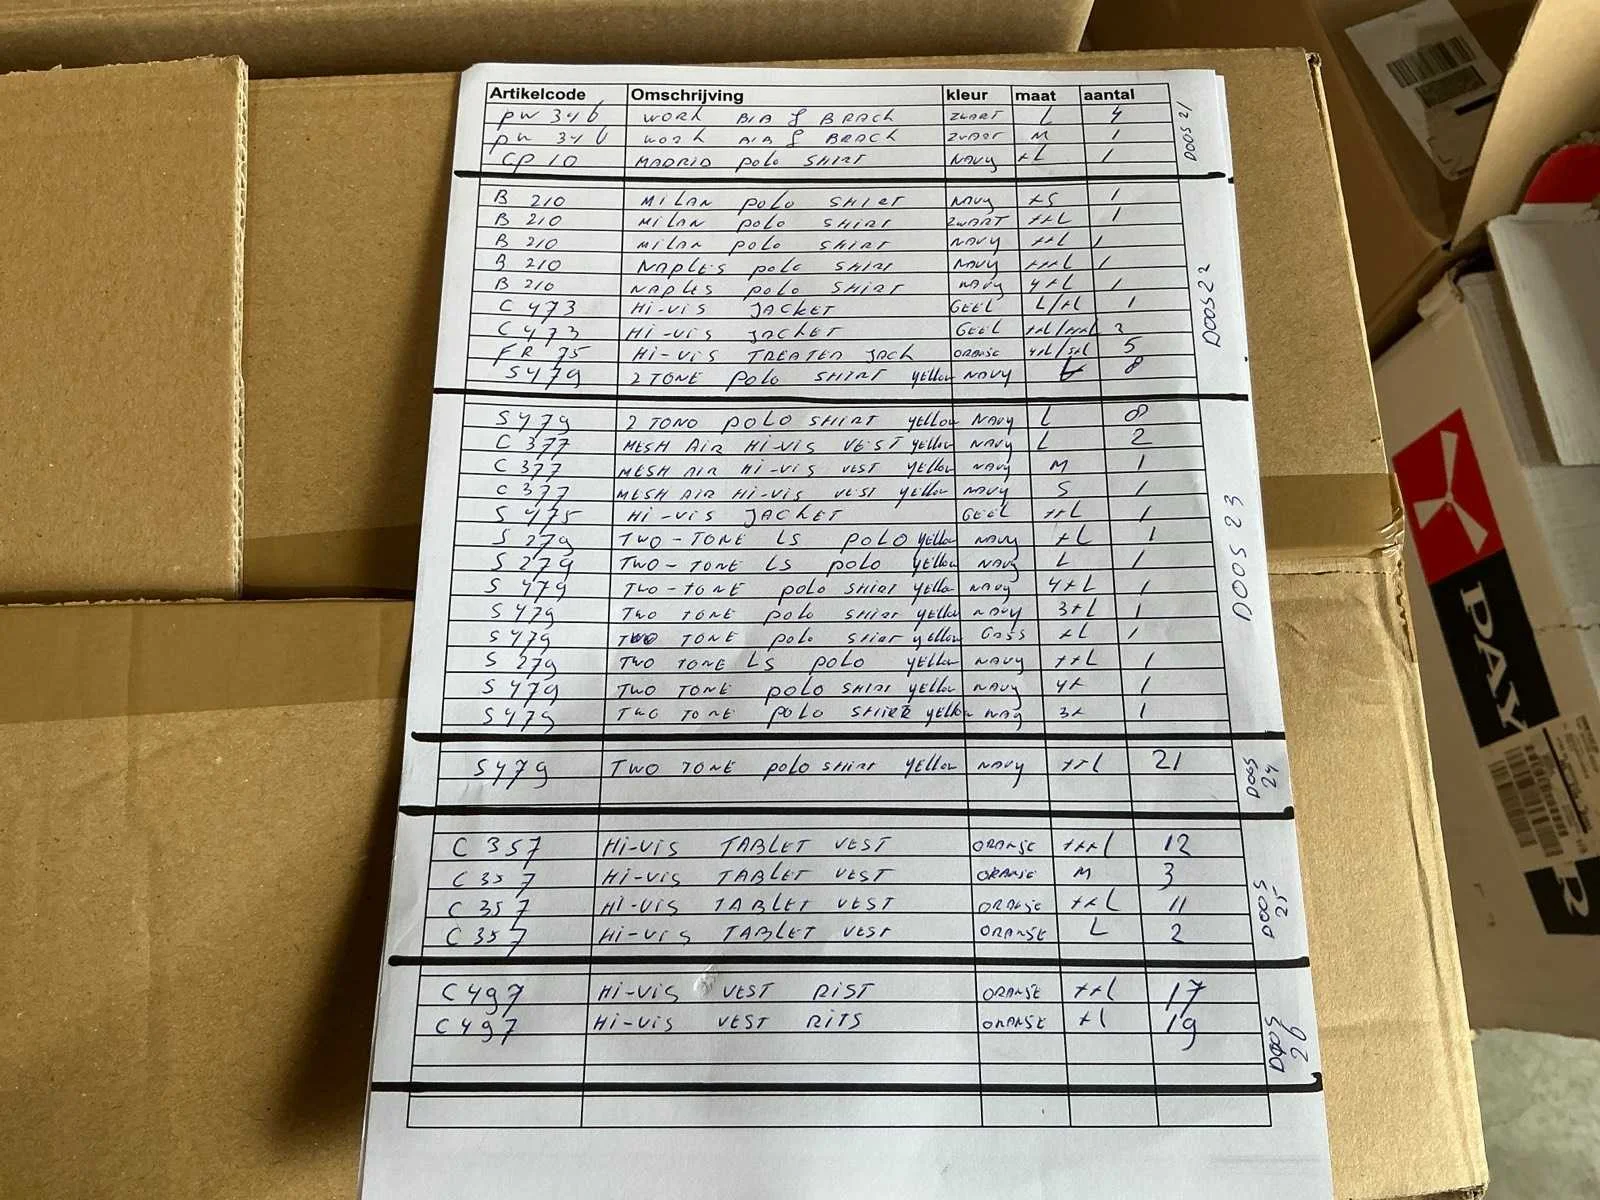 Artikelcode Omschrijving kleur maat aantal
PW 346 WORK BIB & BRACH ZWART L 4
PW 346 WORK BIB & BRACH ZWART M 1
CP 10 MADRID POLO SHIRT NAVY +L 1
DOOS 21
B 210 MILAN POLO SHIRT NAVY +S 1
B 210 MILAN POLO SHIRT ZWART ++L 1
B 210 MILAN POLO SHIRT NAVY ++L 1
B 210 NAPLES POLO SHIRT NAVY +++L 1
B 210 NAPLES POLO SHIRT NAVY 4+L 1
C 473 Hi-Vis JACKET GEEL L/+L 1
C 473 Hi-Vis JACKET GEEL ++L/+++L 3
FR 75 Hi-Vis TREATED JACK ORANSE 4+L/5+L 5
S479 2 TONE POLO SHIRT YELLOW NAVY L 8
DOOS 22
S479 2 TONO POLO SHIRT YELLOW NAVY L 8
C 377 MESH AIR Hi-Vis VEST YELLOW NAVY L 2
C 377 MESH AIR Hi-Vis VEST YELLOW NAVY M 1
C 377 MESH AIR Hi-Vis VEST YELLOW NAVY S 1
S 475 Hi-Vis JACKET GEEL ++L 1
S 279 TWO-TONE LS POLO YELLOW NAVY +L 1
S 279 TWO-TONE LS POLO YELLOW NAVY L 1
S 479 TWO-TONE POLO SHIRT YELLOW NAVY 4+L 1
S 479 TWO TONE POLO SHIRT YELLOW NAVY 3+L 1
S 479 TWO TONE POLO SHIRT YELLOW +L 1
S 279 TWO TONE LS POLO YELLOW NAVY ++L 1
S 479 TWO TONE POLO SHIRT YELLOW NAVY 4+ 1
S 479 TWO TONE POLO SHIRR YELLOW NAY 3+ 1
DOOS 23
S479 TWO TONE POLO SHIRT YELLOW NAVY ++L 21
DOOS 24
C 357 Hi-Vis TABLET VEST ORANSE +++L 12
C 357 Hi-Vis TABLET VEST ORANSE M 3
C 357 Hi-Vis TABLET VEST ORANSE ++L 11
C 357 Hi-Vis TABLET VEST ORANSE L 2
DOOS 25
C 497 Hi-Vis VEST RIST ORANSE ++L 17
C 497 Hi-Vis VEST RITS ORANSE +L 19
DOOS 26
PAY
R